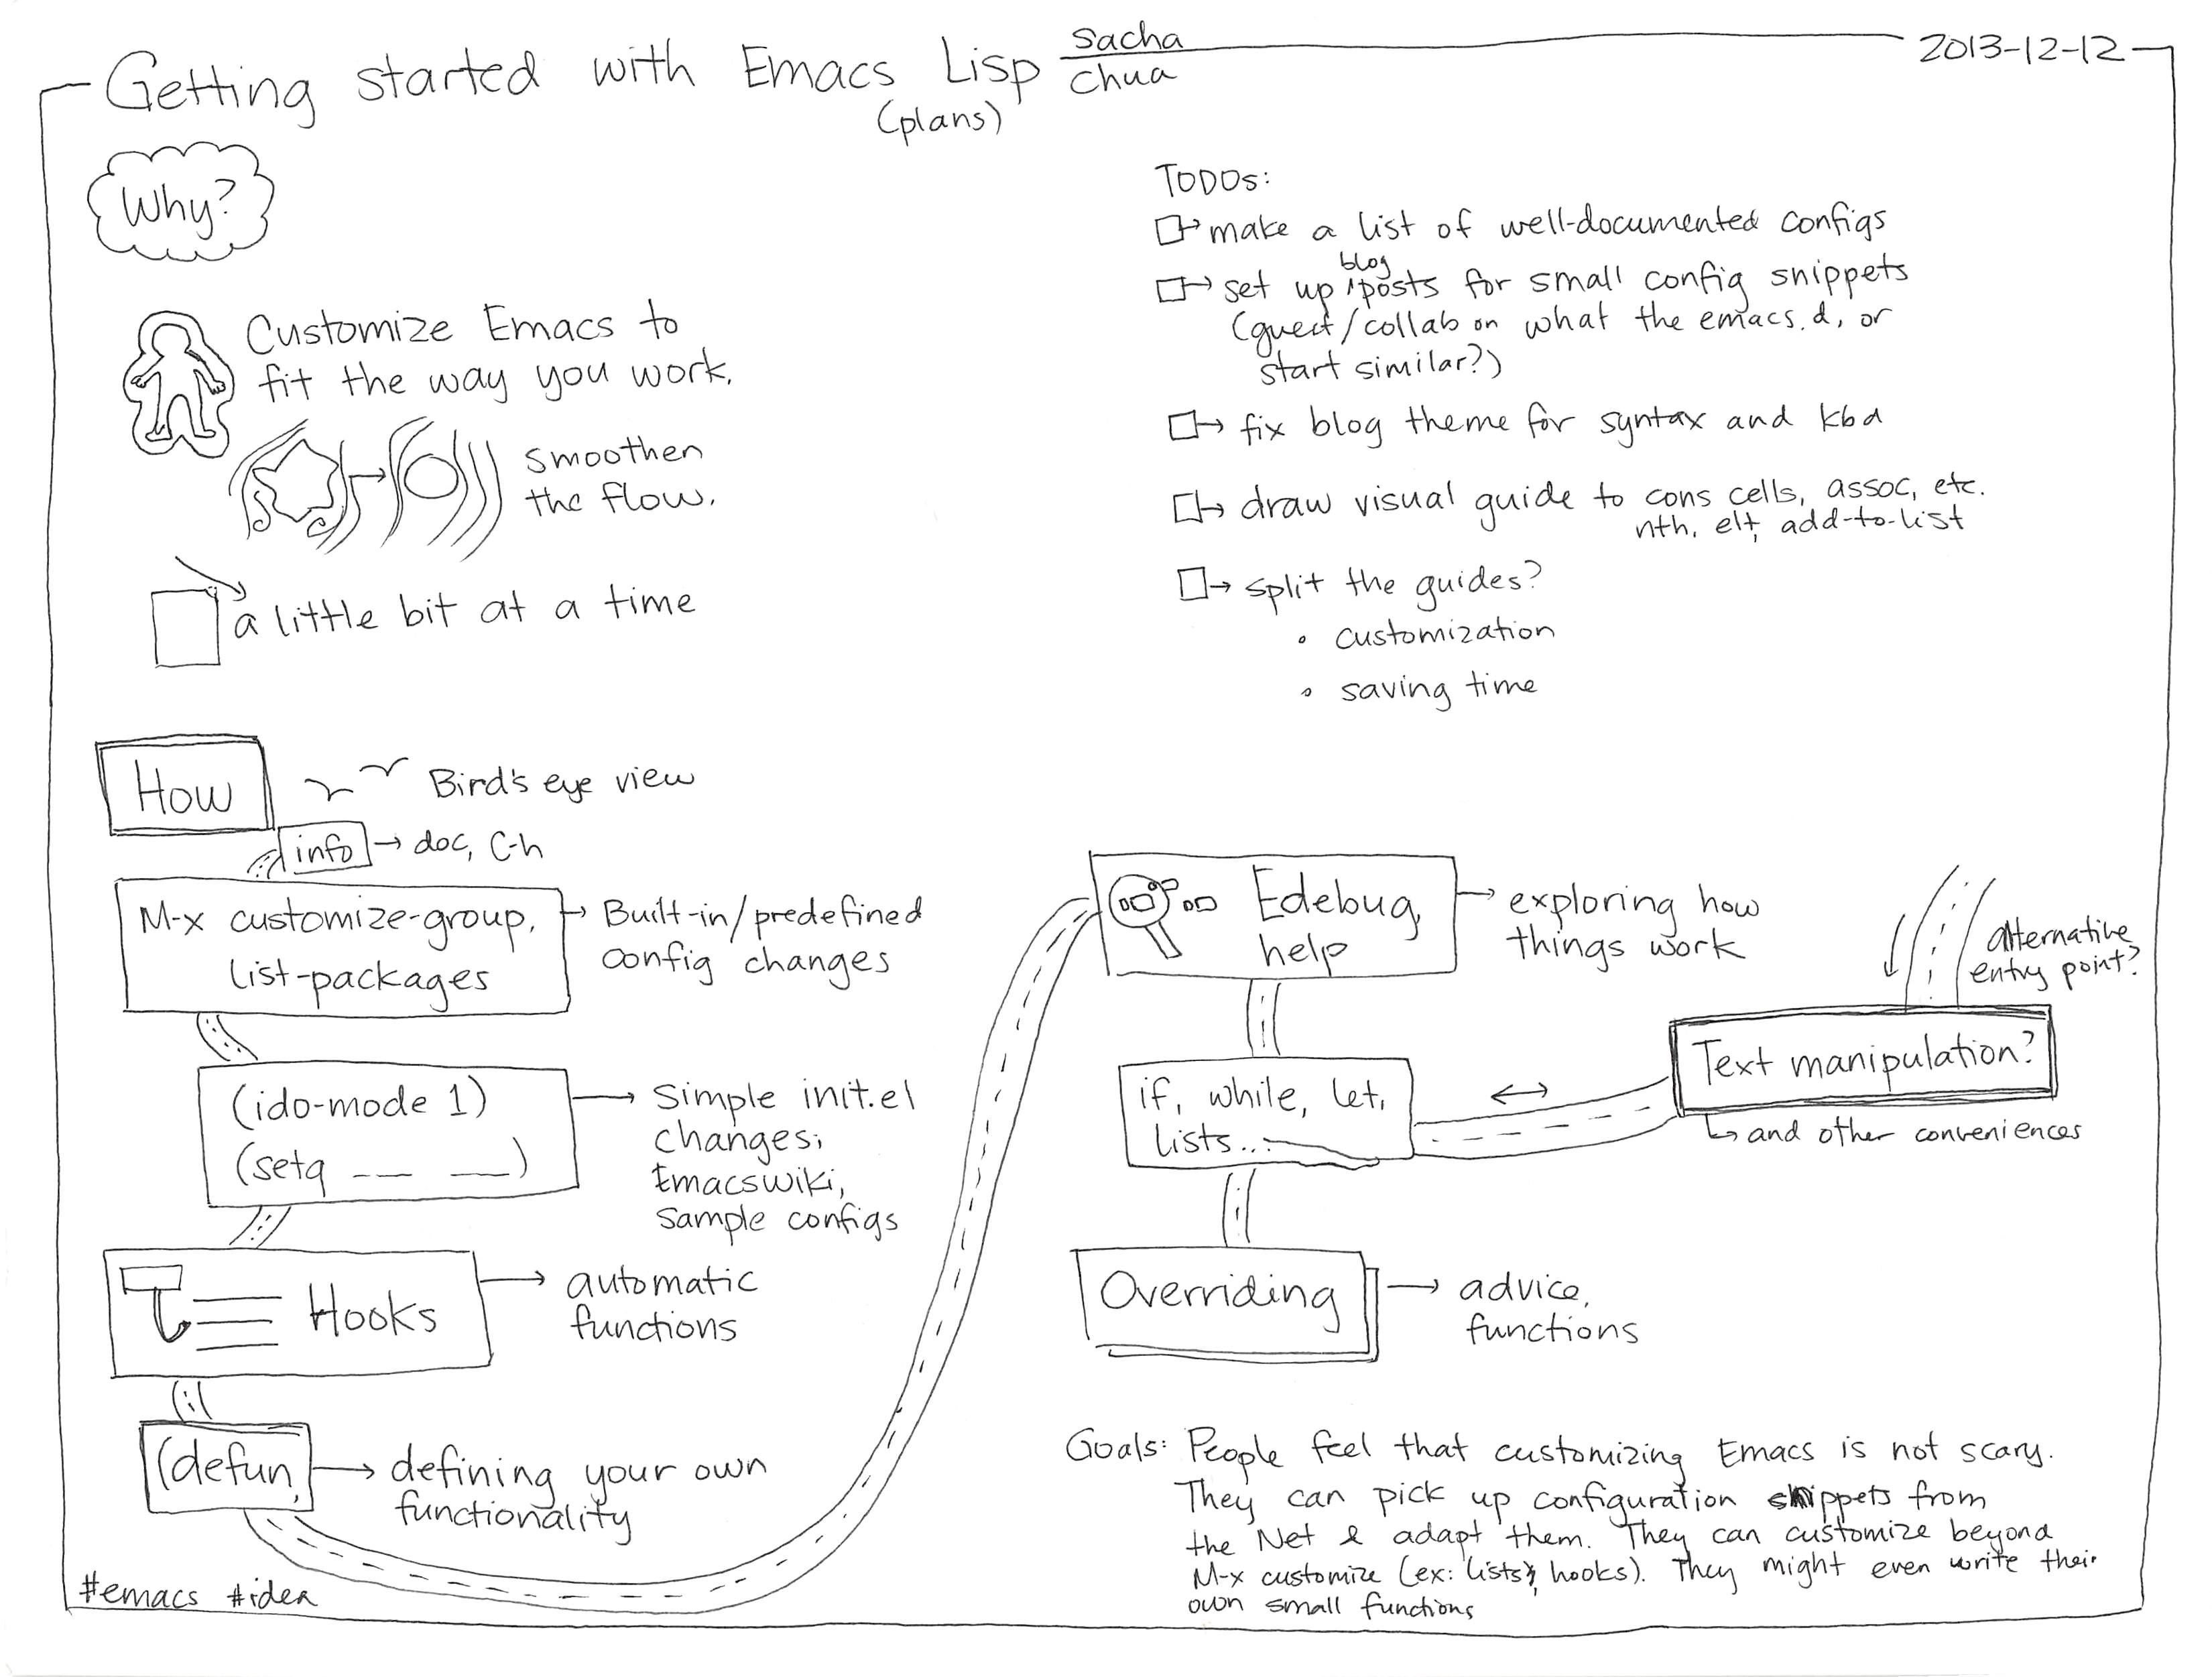 Getting started with Emacs Lisp
(plans)
Sacha
Chua
2013-12-12
Why?
Customize Emacs to
fit the way you work.
smoothen
the flow.
a little bit at a time
TODOs:
make a list of well-documented configs
set up blog posts for small config snippets
(guest/collab on what the emacs.d, or
start similar?)
fix blog theme for syntax and kbd
draw visual guide to cons cells, assoc, etc.
nth, elt, add-to-list
split the guides?
• customization
• saving time
How
Bird's eye view
info → doc, C-h
M-x customize-group,
list-packages
→ Built-in/predefined
config changes
(ido-mode 1)
(setq __ __)
→ Simple init.el
changes;
Emacswiki,
sample configs
Hooks
→ automatic
functions
(defun,
→ defining your own
functionality
Edebug,
help
→ exploring how
things work
if, while, let,
lists...
alternative
entry point?
Text manipulation?
↳ and other conveniences
Overriding
→ advice,
functions
Goals: People feel that customizing Emacs is not scary.
They can pick up configuration snippets from
the Net & adapt them. They can customize beyond
M-x customize (ex: lists, hooks). They might even write their
own small functions
#emacs #idea